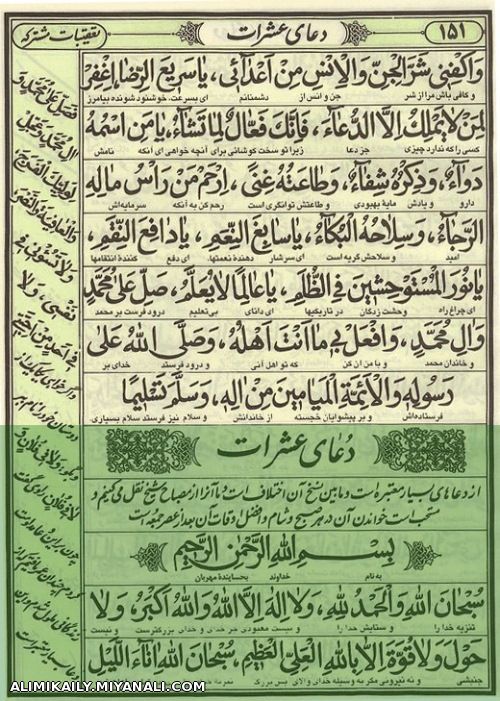 ۱۵۱
دعای عشرات
تعقیبات مشترکه
وَاكْفِنى شَرَّ الْجِنِّ وَالْاِنْسِ مِنْ اَعْدآئى، يا سَريعَ الرِّضا، اِغْفِرْ
و کافی باش مرا از شر جن و انس از دشمنانم ای بسرعت خوشنود شونده بیامرز
لِمَنْ لا يَمْلِكُ اِلَّا الدُّعآءَ، فَاِنَّكَ فَعّالٌ لِما تَشآءُ، يا مَنِ اسْمُهُ
کسی را که ندارد چیزی جز دعا زیرا تو سخت کوشائی برای آنچه خواهی ای آنکه نامش
دَوآءٌ، وَذِكْرُهُ شِفآءٌ، وَطاعَتُهُ غِنىً، اِرْحَمْ مَنْ رَاْسُ مالِهِ
دارو و یادش مایهٔ بهبودی و طاعتش توانگری است رحم کن به آنکه سرمایه‌اش
الرَّجآءُ، وَسِلاحُهُ الْبُكآءُ، يا سابِغَ النِّعَمِ، يا دافِعَ النِّقَمِ،
امید و سلاحش گریه است ای سرشار دهندهٔ نعمتها، ای دفع کنندهٔ انتقامها
يا نُورَ الْمُسْتَوْحِشينَ فِى الظُّلَمِ، يا عالِماً لا يُعَلَّمُ، صَلِّ عَلى مُحَمَّدٍ
ای چراغ راه وحشت زدگان در تاریکیها ای دانای بی‌تعلیم درود فرست بر محمد
وَآلِ مُحَمَّدٍ، وَافْعَلْ بى ما اَنْتَ اَهْلُهُ، وَصَلَّى اللهُ عَلى
و خاندان محمد و با من آن کن که تو اهل آنی و درود فرستد خدای بر
رَسُولِهِ وَالْاَئِمَّةِ الْمَيامينَ مِنْ الِهِ، وَسَلَّمَ تَسْليماً
فرستاده‌اش و بر پیشوایان خجسته از خاندانش و سلام نیز فرستد سلام بسیاری
دُعای عشرات
از دعاهای بسیار معتبره است و مابین نسخ آن اختلاف است و ما آنرا از مصباح شیخ نقل می کنیم و
مستحب است خواندن آن در هر صبح و شام و افضل اوقات آن بعد از عصر جمعه است
بِسْمِ اللهِ الرَّحْمٰنِ الرَّحيمِ
به نام خداوند بخشایندهٔ مهربان
سُبْحانَ اللهِ وَالْحَمْدُ لِلّهِ، وَلا اِلهَ اِلَّا اللهُ وَاللهُ اَكْبَرُ، وَلا
تنزیه خدا را و ستایش خدا را و نیست معبودی جز خدای و خدای بزرگتر است و نیست
حَوْلَ وَلا قُوَّةَ اِلّا بِاللهِ الْعَلِىِّ الْعَظيمِ، سُبْحانَ اللهِ اناءَ اللَّيْلِ
جنبشی و نه نیرویی مگر به وسیله خدای والای بس بزرگ
فَصَلِّ عَلى مُحَمَّدٍ وَ
الِ مُحَمَّدٍ وَعَجِّلْ
لِوَلِيِّكَ الْفَرَجَ
وَالْعافِيَةَ وَالنَّصْرَ
وَلا تَسُؤْنى فى
نَفْسى، وَلا
فى اَحَدٍ مِنْ اَحِبَّتى
و اگر خواهی یکایک از
دوستان خود را نام ببر
ALIMIKAILY.MIYANALI.COM